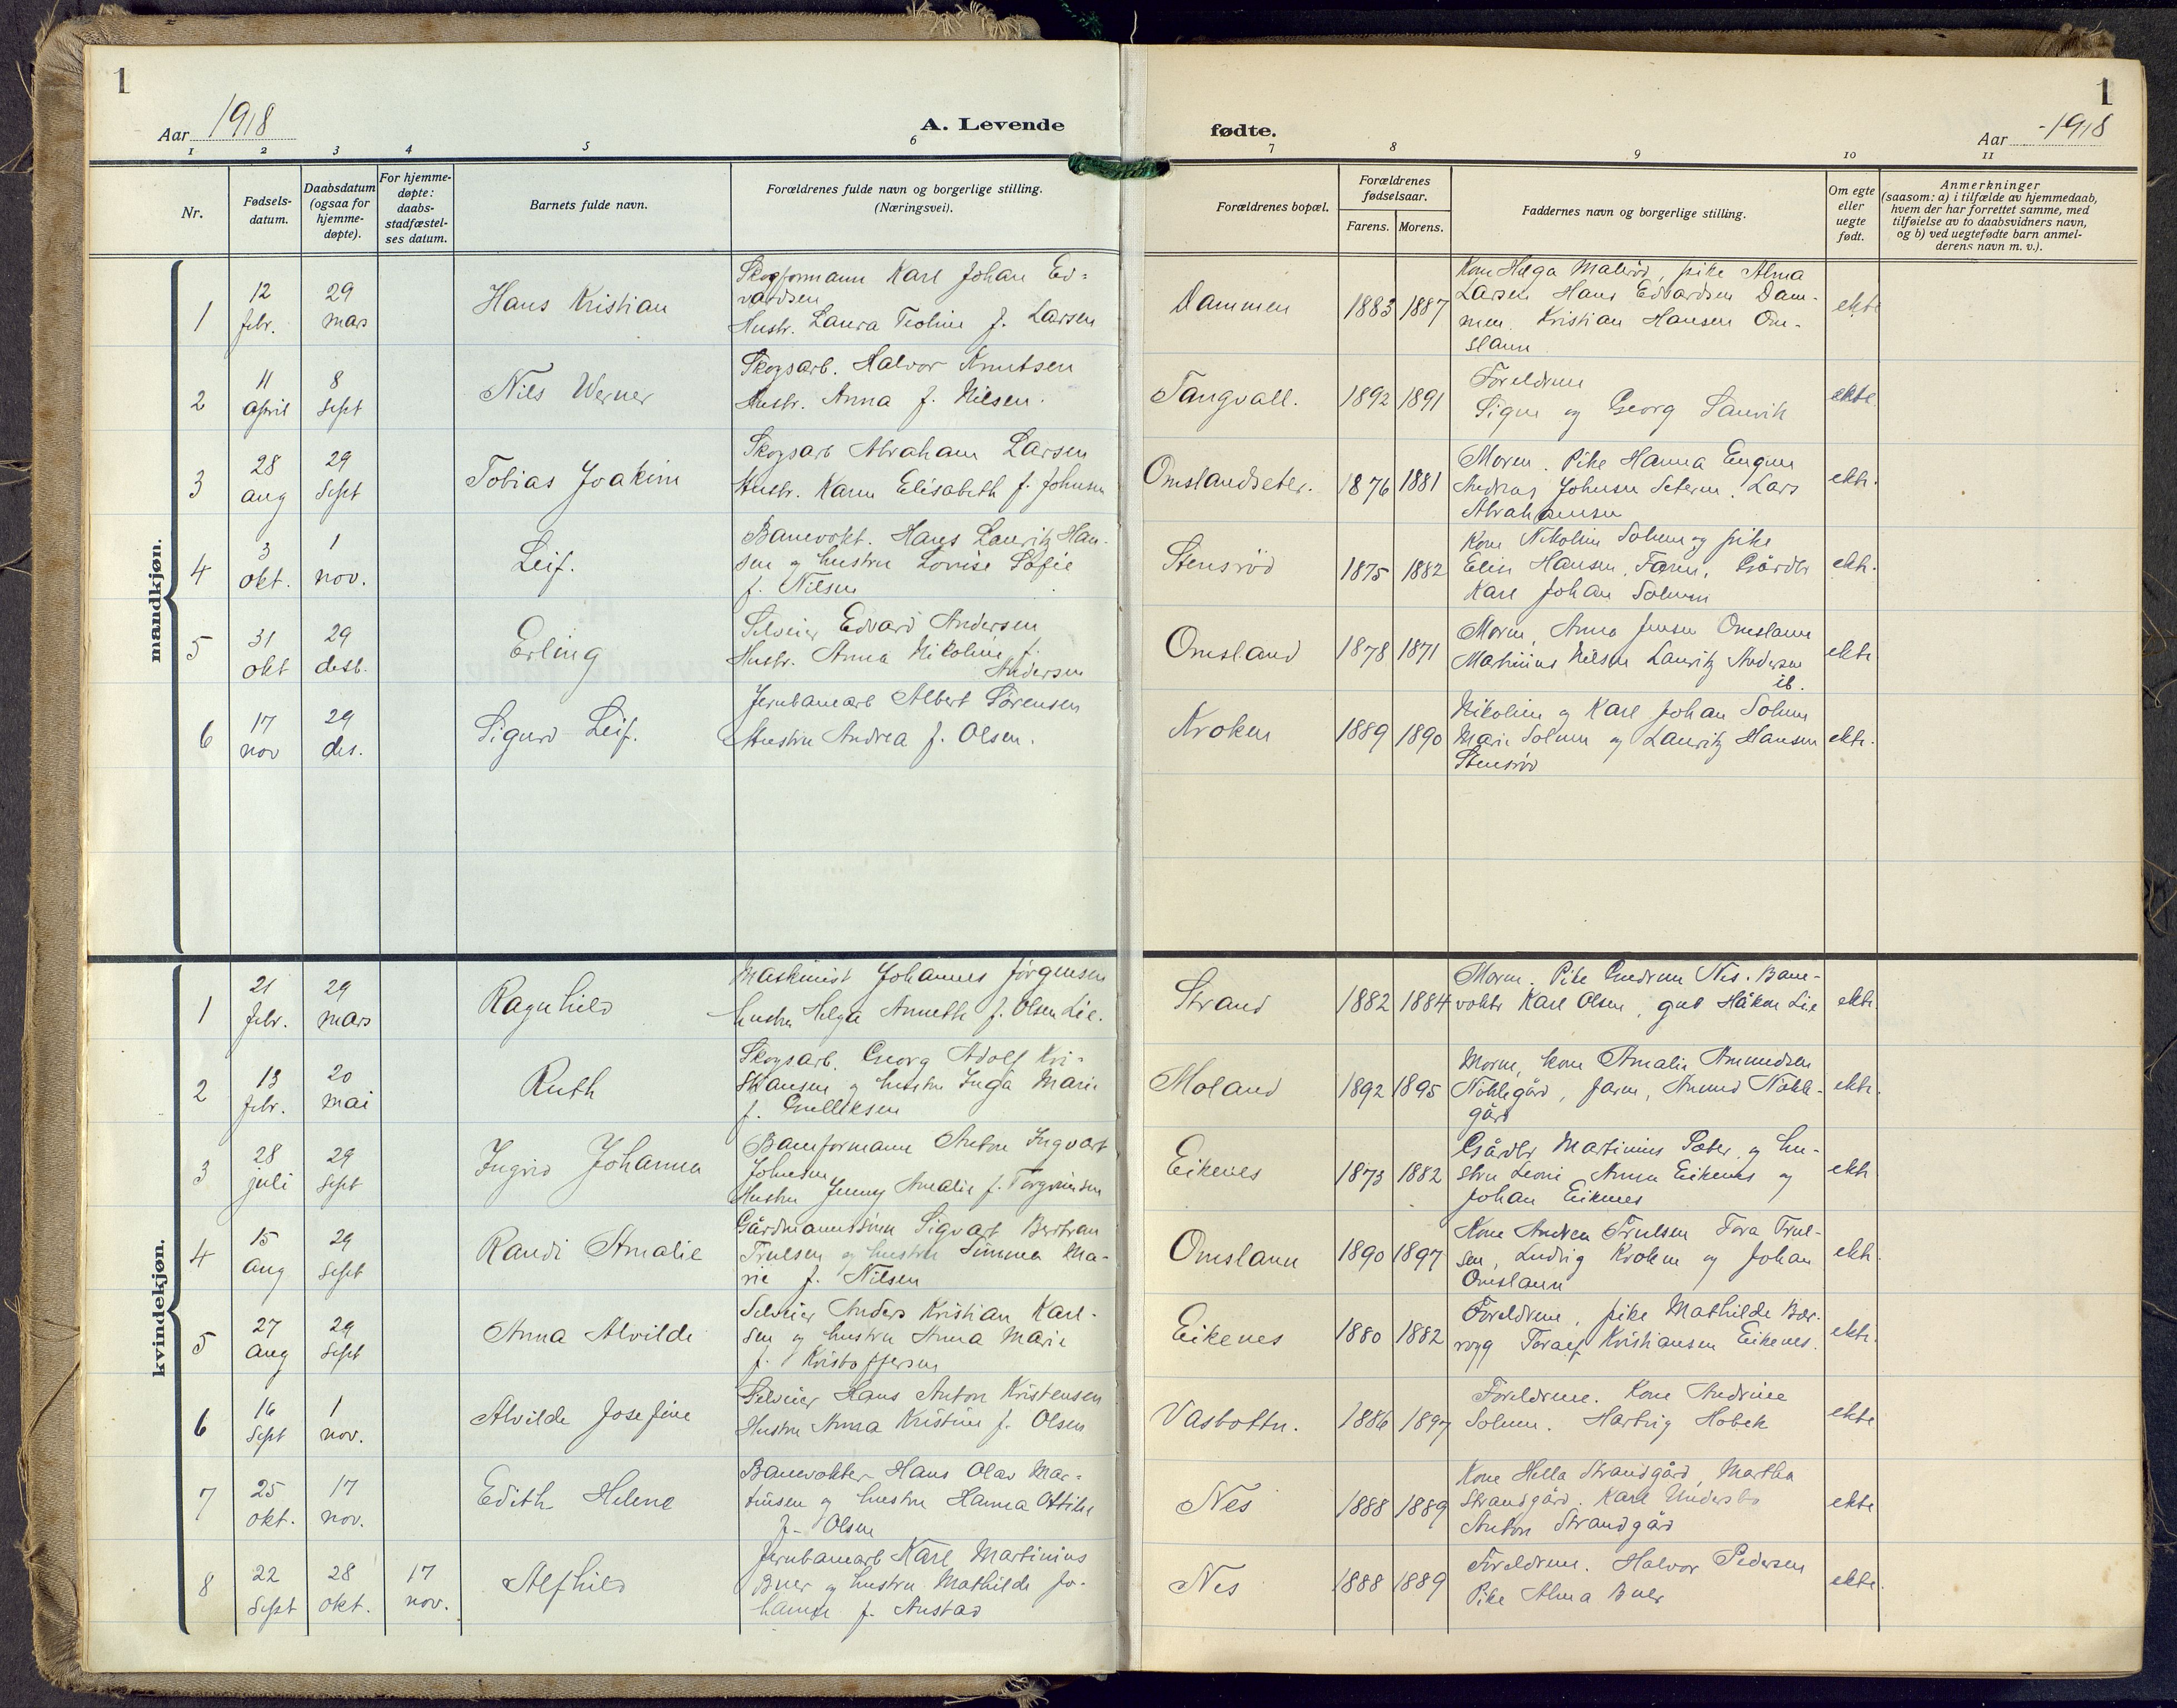 1
Aar 1918
A. Levende
1 2 3 4 5 6
Nr.
Fødsels-
datum.
Daabsdatum
(ogsaa for
hjemme-
døpte).
For hjemme-
døpte:
daabs-
stadfæstel-
ses datum.
Barnets fulde navn.
Forældrenes fulde navn og borgerlige stilling.
(Næringsvei).
fødte.
1
Aar 1918
7 8 9 10 11
Forældrenes bopæl.
Forældrenes
fødselsaar.
Farens. Morens.
Faddernes navn og borgerlige stilling.
Om egte
eller
uegte
født.
Anmerkninger
(saasom: a) i tilfælde av hjemmedaab,
hvem der har forrettet samme, med
tilføielse av to daabsvidners navn,
og b) ved uegtefødte barn anmel-
derens navn m. v.).
mandkjøn.
1
12
febr.
29
mars
Hans Kristian
Skogformann Karl Johan Ed-
vardsen
Hustr. Laura Teoline f. Larsen
Dammen
1883 1887
Kone Helga Malerød, pike Alma
Larsen Hans Edvardsen Dam-
men. Kristian Hansen Om-
slann
ekte
2
11
april
8
sept
Nils Werner
Skogsarb. Halvor Knutsen
Hustr. Anna f. Nilsen.
Tangvall.
1892 1891
Foreldrene
Signe og Georg Sanvik
ekte
3
28
aug
29
sept
Tobias Joakim
Skogsarb Abraham Larsen
Hustr. Karen Elisabeth f. Johnsen
Omslandseter.
1876 1881
Moren. Pike Hanna Eugene
Andreas Johnsen Seteren. Lars
Abrahamsen
ekte.
4
3
okt.
1
nov.
Leif.
Banevokt. Hans Lauritz Han-
sen og hustru Lovise Sofie
f. Nilsen
Stensrød
1875 1882
Kone Nikoline Solum og pike
Elin Hansen, Faren, Gårdbr
Karl Johan Solum
ekte.
5
31
okt
29
desb.
Erling
Selveier Edvard Andersen
Hustr. Anna Nikoline f.
Andersen
Omsland
1878 1871
Moren, Anna Jensen Omslann
Martinius Nilsen Lauritz Andersen
ib.
ekte
6
17
nov
29
des.
Sigurd Leif.
Jernbanearb Albert Sørensen
Hustru Andrea f. Olsen.
Kroken
1889 1890
Nikoline og Karl Johan Solum
Marie Solum og Lauritz Hansen
Stensrød
ekte.
kvindekjøn.
1
21
febr.
29
mars
Ragnhild
Maskinist Johannes Jørgensen
hustru Helga Annette f. Olsen Lie.
Strand
1882 1884
Moren. Pike Gudrun Nes. Bane-
vokter Karl Olsen, gut Håkon Lie
ekte.
2
13
febr.
20
mai
Ruth
Skogsarb. Georg Adolf Kri-
stiansen og hustru Inga Marie
f. Gulliksen
Moland
1892 1895
Moren, kone Amalie Amundsen
Nøklegård, faren, Amund Nøkle-
gård
ekte.
3
28
juli
29
sept
Ingrid Johanna
Baneformann Anton Ingvart
Johnsen
Hustru Jenny Amalie f. Torgrimsen
Eikenes
1873 1882
Gårdbr Martinius Sæter og hu-
stru Leoni Anna Eikenes og
Johan Eikenes
ekte
4
15
aug
29
sept
Randi Amalie
Gårdmannssønn Sigvart Bertran
Trulsen og hustru Simmea Ma-
rie f. Nilsen
Omslann
1890 1897
Kone Andrea Trulsen Tora Trul-
sen, Ludvig Kroken og Johan
Omslann
ekte.
5
27
aug
29
sept
Anna Alvilde
Selveier Anders Kristian Karl-
sen og hustru Anna Marie
f. Kristoffersen
Eikenes
1880 1882
Foreldrene, pike Mathilde Bær-
rogg Toralf Kristiansen Eikenes.
ekte.
6
16
sept
1
nov.
Alvilde Josefine
Selveier Hans Anton Kristensen
Hustru Anna Kristine f. Olsen
Vasbottn.
1886 1897
Foreldrene. Kone Andrine
Solum. Hartvig Hobek
ekte
7
25
okt.
17
nov.
Edith Helene
Banevokter Hans Olav Mar-
tinsen og hustru Hanna Ottilie
f. Olsen
Nes
1888 1889
Kone Hella Strandgård, Martha
Strandgård. Karl Undersbo
Anton Strandgård
ekte
8
22
sept
28
okt.
17
nov.
Alfhild
Jernbanearb Karl Martinius
Buer og hustru Mathilde Jo-
hanne f. Anstad
Nes
1888 1889
Foreldrene. Halvor Pedersen
Pike Alma Buer
ekte.